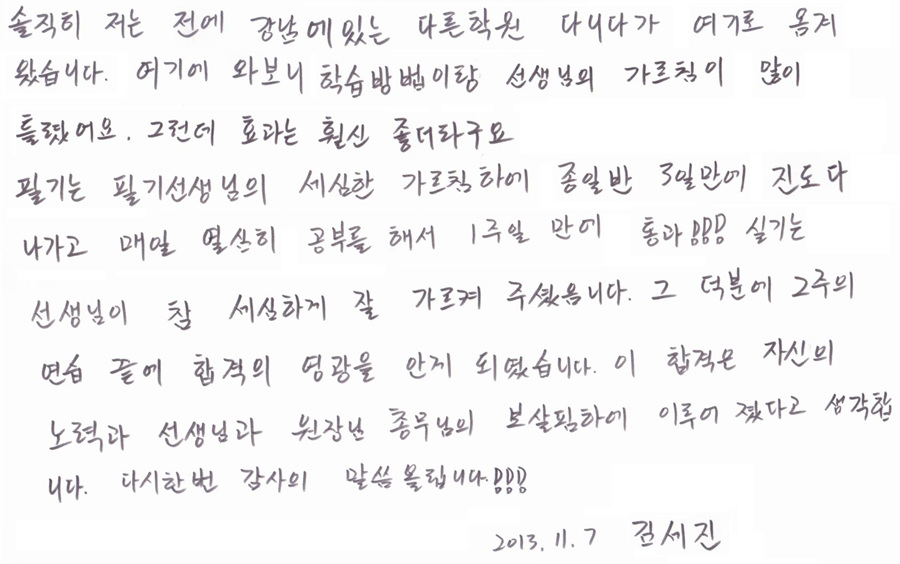 솔직히 저는 전에 강남에있는 다른학원 다니다가 여기로 옴겨
왔습니다. 여기에 와보니 학습방법이랑 선생님의 가르침이 많이
틀렸어요. 그런데 효과는 훨신 좋더라구요
필기는 필기선생님의 세심한 가르침하에 종일반 3일만에 진도다
나가고 매일 열심히 공부를 해서 1주일 만에 통과!!! 실기는
선생님이 참 세심하게 잘 가르켜 주셨음니다. 그 덕분에 2주의
연습 끝에 합격의 영광을 안게 되였습니다. 이 합격은 자신의
노력과 선생님과 원장님 총무님의 보살핌하에 이루어 졌다고 생각합
니다. 다시한번 감사의 말씀 올립니다.!!!
2013.11.7 김세진